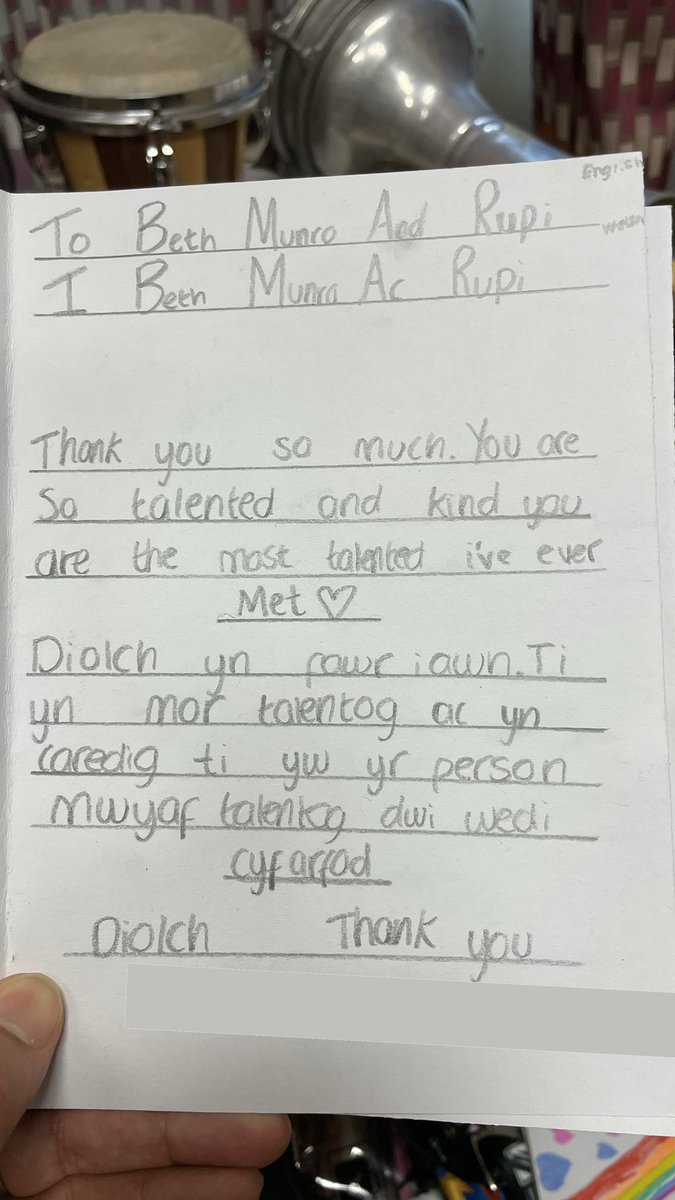 English
To Beth Munro And Rupi
Welsh
I Beth Munro Ac Rupi
Thank you so much. You are
So talented and kind you
are the most talented i've ever
Met ♡
Diolch yn fawr iawn. Ti
yn mor talentog ac yn
caredig ti yw yr person
Mwyaf talentog dwi wedi
cyfarfod
Diolch Thank you